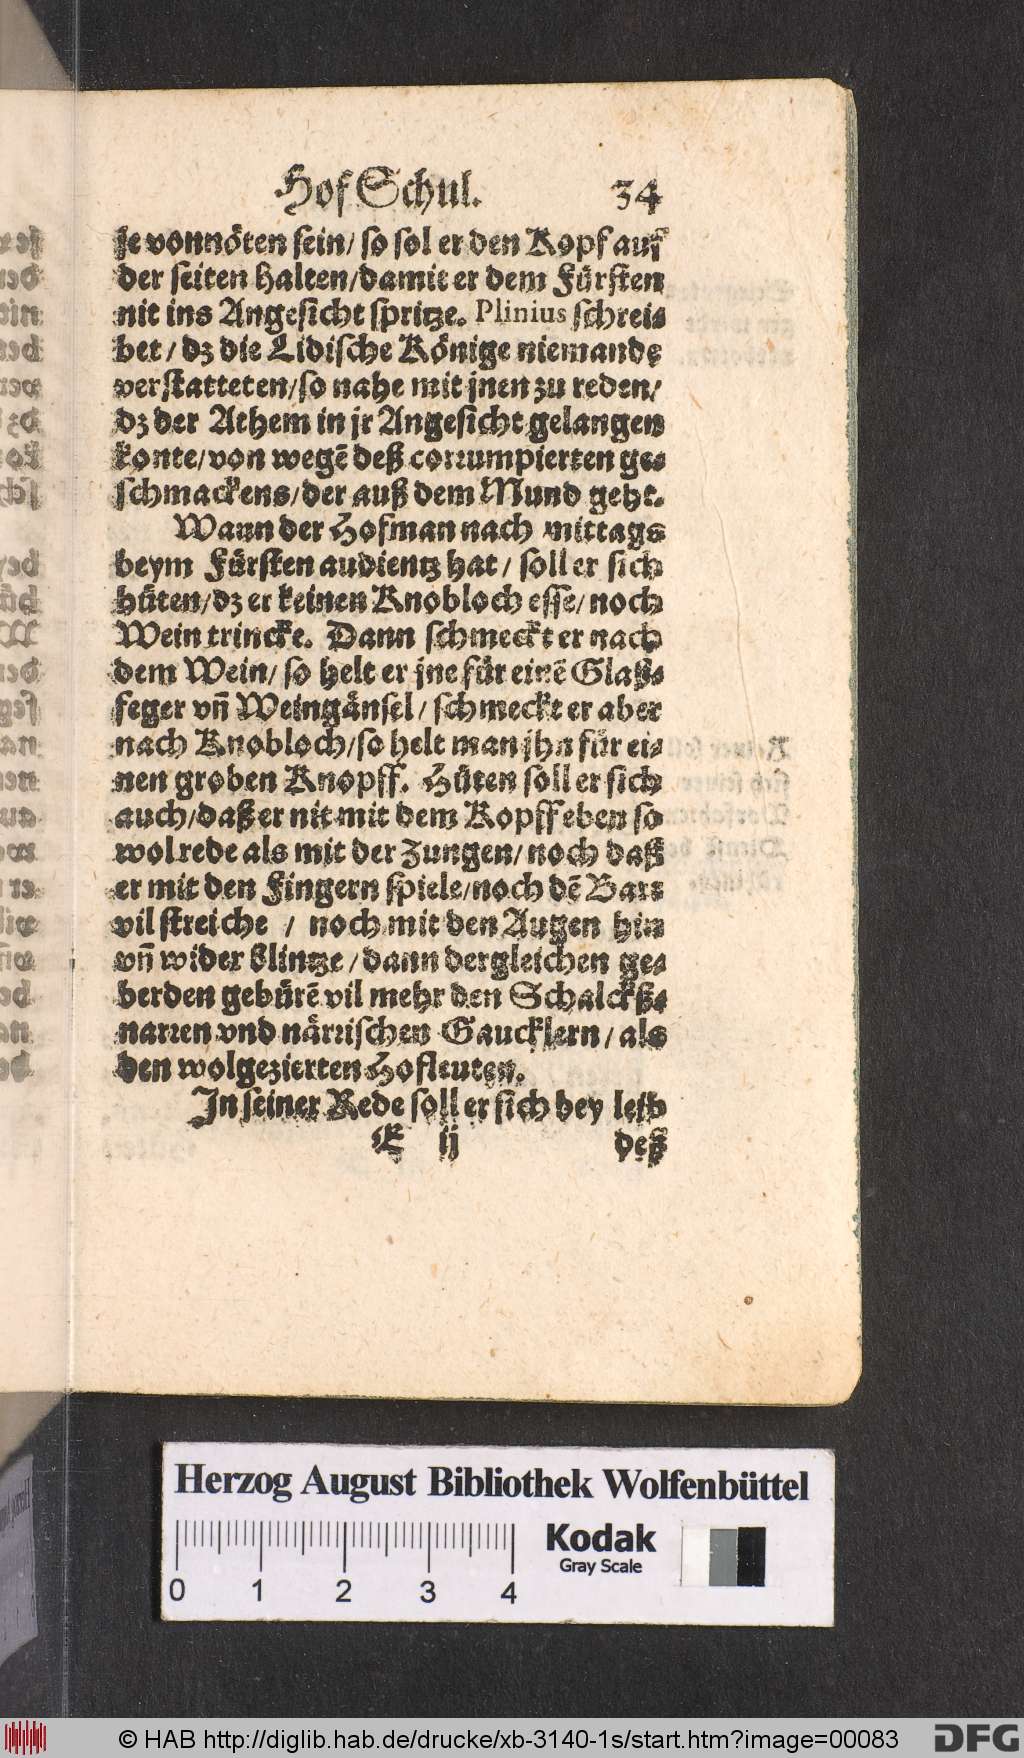 Hof Schul. 34
je vonnöten sein/ so sol er den Kopf auf
der seiten halten/damit er dem Fürsten
nit ins Angesicht spritze. Plinius schrei-
bet / dz die Lidische Könige niemande
verstatteten/so nahe mit jnen zu reden/
dz der Athem in jr Angesicht gelangen
konte/von wegē deß corrumpierten ge-
schmackens/der auß dem Mund geht.
Wann der Hofman nach mittags
beym Fürsten audientz hat / soll er sich
hüten/dz er keinen Knobloch esse/noch
Wein trincke. Dann schmeckt er nach
dem Wein/ so helt er jne für einē Glaß-
feger vñ Weingänsel/ schmeckt er aber
nach Knobloch/so helt man jhn für ei-
nen groben Knopff. Hüten soll er sich
auch/daß er nit mit dem Kopff eben so
wol rede als mit der Zungen/noch daß
er mit den Fingern spiele/noch dē Bart
vil streiche / noch mit den Augen hin
vñ wider blintze/dann dergleichen ge-
berden gebürē vil mehr den Schalckß-
narren vnd närrischen Gaucklern/als
den wolgezierten Hofleuten.
In seiner Rede soll er sich bey leib
E ij deß
Herzog August Bibliothek Wolfenbüttel
Kodak
Gray Scale
0 1 2 3 4
© HAB http://diglib.hab.de/drucke/xb-3140-1s/start.htm?image=00083
DFG